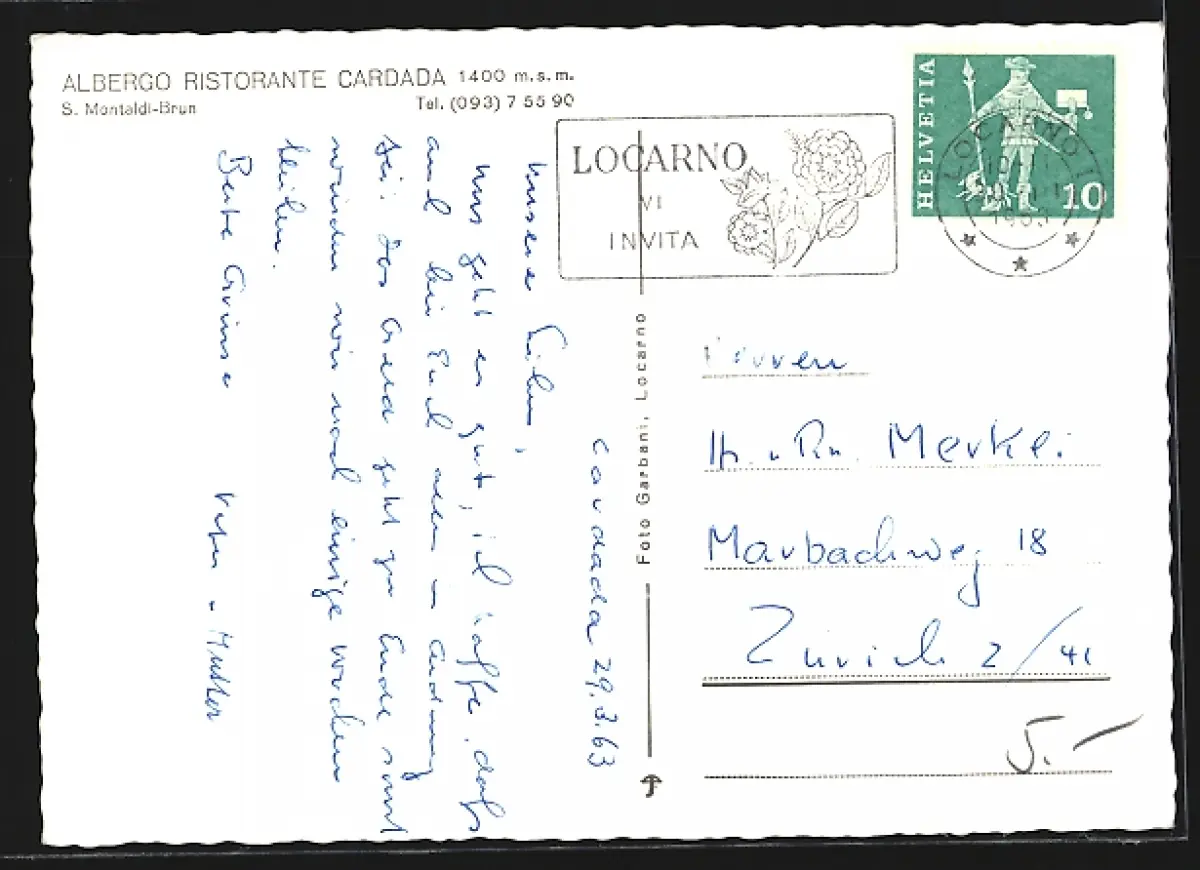 ALBERGO RISTORANTE CARDADA 1400 m.s.m.
S. Montaldi-Brun Tel. (093) 7 55 90
LOCARNO
VI
INVITA
HELVETIA
10
LOCARNO 1
1963
Cardada 29.3.63
Unsere Lieben,
uns geht es gut, ich hoffe, dass
auch bei Euch alles in Ordnung
sei. Das Geld geht zu Ende sonst
würden wir noch einige Wochen
bleiben.
Beste Grüsse Vater u. Mutter
Foto Garbani, Locarno
H. u. R. Merkli
Marbachweg 18
Zürich 2/41
5.-